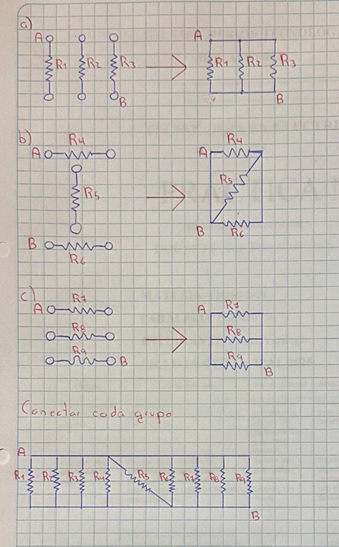 a)
A R1 R2 R3 B
A R1 R2 R3 B
b)
A R4
R5
B R6
A R4
R5
B R6
c)
A R7
R8
R9 B
A R7
R8
R9
B
Conectar cada grupo
A
R1 R2 R3 R4 R5 R6 R7 R8 R9
B